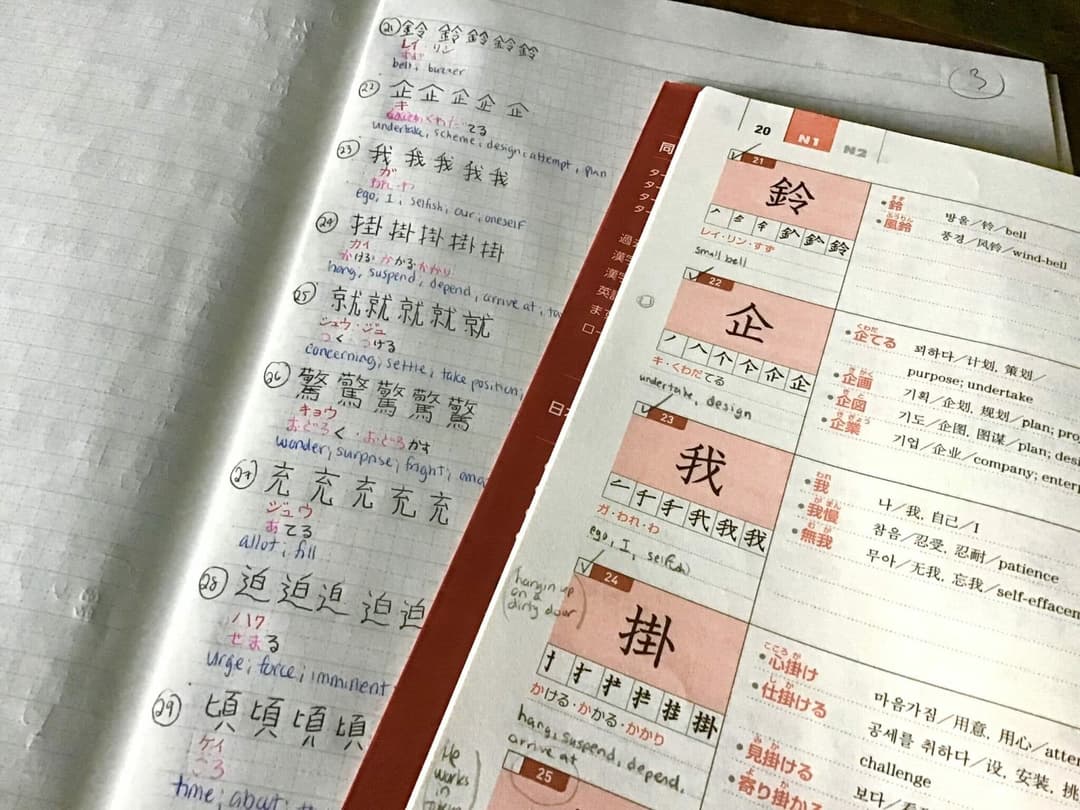 3
㉑ 鈴 鈴 鈴 鈴 鈴
レイ・リン
すず
bell; buzzer
㉒ 企 企 企 企 企
キ
くわだてる
undertake, scheme, design, attempt, plan
㉓ 我 我 我 我 我
ガ
われ・わ
ego, I, selfish, our, oneself
㉔ 掛 掛 掛 掛 掛
カイ
かける かかる かかり
hang, suspend, depend, arrive at, tax
㉕ 就 就 就 就 就
シュウ・ジュ
つく つける
concerning, settle, take position;
㉖ 驚 驚 驚 驚 驚
キョウ
おどろく おどろかす
wonder; surprise; fright;
㉗ 充 充 充 充 充
ジュウ
あてる
allot; fill
㉘ 迫 迫 迫 迫 迫
ハク
せまる
urge; force; imminent
㉙ 頃 頃 頃 頃
ケイ
ころ
time; about;
同
漢字
漢字
英語
日本
20 N1 N2
21
鈴
レイ・リン・すず
small bell
すず
•鈴 방울/铃/bell
ふうりん
•風鈴 풍경/风铃/wind-bell
22
企
キ・くわだてる
undertake, design
くわだ
•企てる 꾀하다/计划, 策划/
purpose; undertake
きかく
•企画 기획/企划, 规划/plan;
きと
•企図 기도/企图, 图谋/plan;
きぎょう
•企業 기업/企业/company;
23
我
ガ・われ・わ
ego, I, selfish
われ
•我 나/我, 自己/I
がまん
•我慢 참음/忍受, 忍耐/patience
むが
•無我 무아/无我, 忘我/
24
(hangin up
on a
dirty door)
掛
かける・かかる・かかり
hang, suspend, depend,
arrive at
こころが
•心掛け 마음가짐/用意, 用心/
しか
•仕掛ける 공세를 취하다/设, 安装,
challenge
みか
•見掛ける 보다/
よ か
•寄り掛かる
25
He
works
in